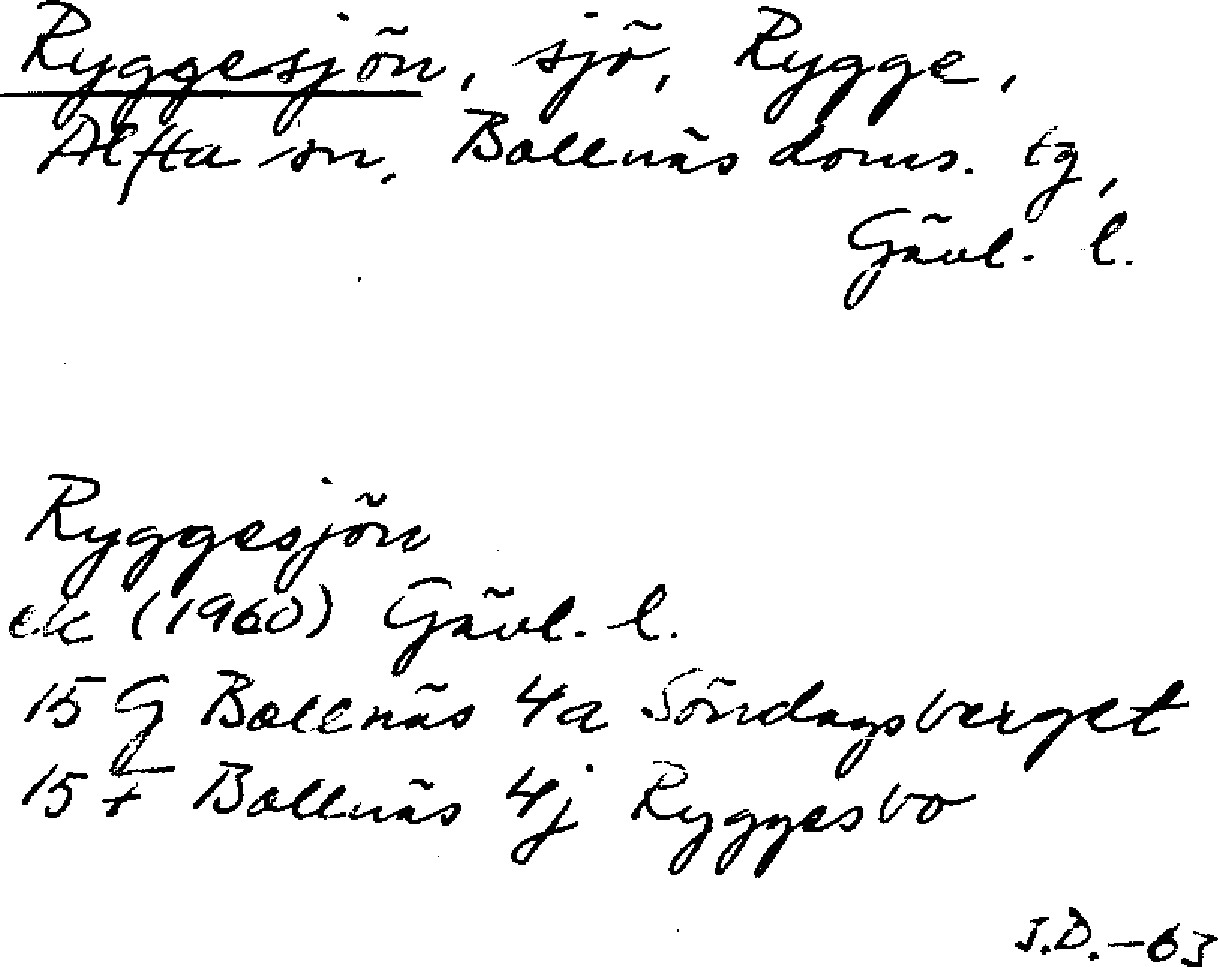 Ryggesjön, sjö, Rygge,
Alfta sn, Bollnäs doms. tg,
Gävl. l.
Ryggesjön
ek (1960) Gävl. l.
15 G Bollnäs 4a Söndagsberget
15 F Bollnäs 4j Ryggesbo
J.D.-63